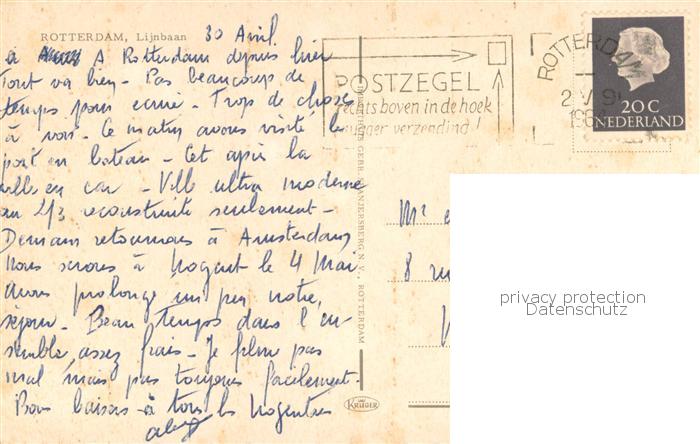 ROTTERDAM, Lijnbaan
30 Avril
à A Rotterdam depuis hier
Tout va bien - Pas beaucoup de
temps pour écrire - Trop de choses
à voir - Ce matin avons visité le
port en bateau - Cet après la
ville en car - Ville ultra moderne
au 2/3 reconstruite seulement -
Demain retournons à Amsterdam
nous serons à Nogent le 4 Mai
avons prolongé un peu notre
séjour - Beau temps dans l'en-
semble, assez frais - Je filme pas
mal mais pas toujours facilement -
Bons baisers à tous les Nogentais
POSTZEGEL
rechts boven in de hoek
vlugger verzending!
ROTTERDAM
20 C
NEDERLAND
GEBR. SPANJERSBERG N.V., ROTTERDAM
KRÜGER
Mr
8
privacy protection
Datenschutz